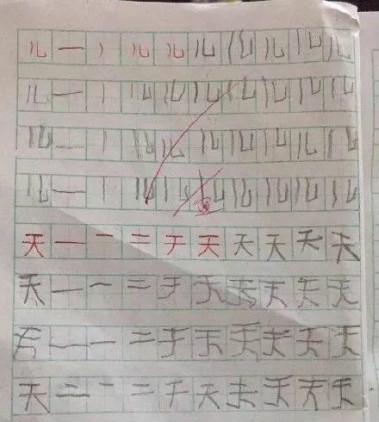 儿 一 丿 儿 儿 儿 儿 儿 儿 儿
儿 一 丨 儿 儿 儿 儿 儿 儿 儿
儿 一 丨 儿 儿 儿 儿 儿 儿 儿
儿 一 丨 儿 儿 儿 儿 儿 儿 儿
天 一 二 三 于 天 天 天 天 天
天 一 一 二 于 天 天 天 天 天
天 一 一 二 于 天 天 天 天 天
天 二 一 二 于 天 天 天 天 天